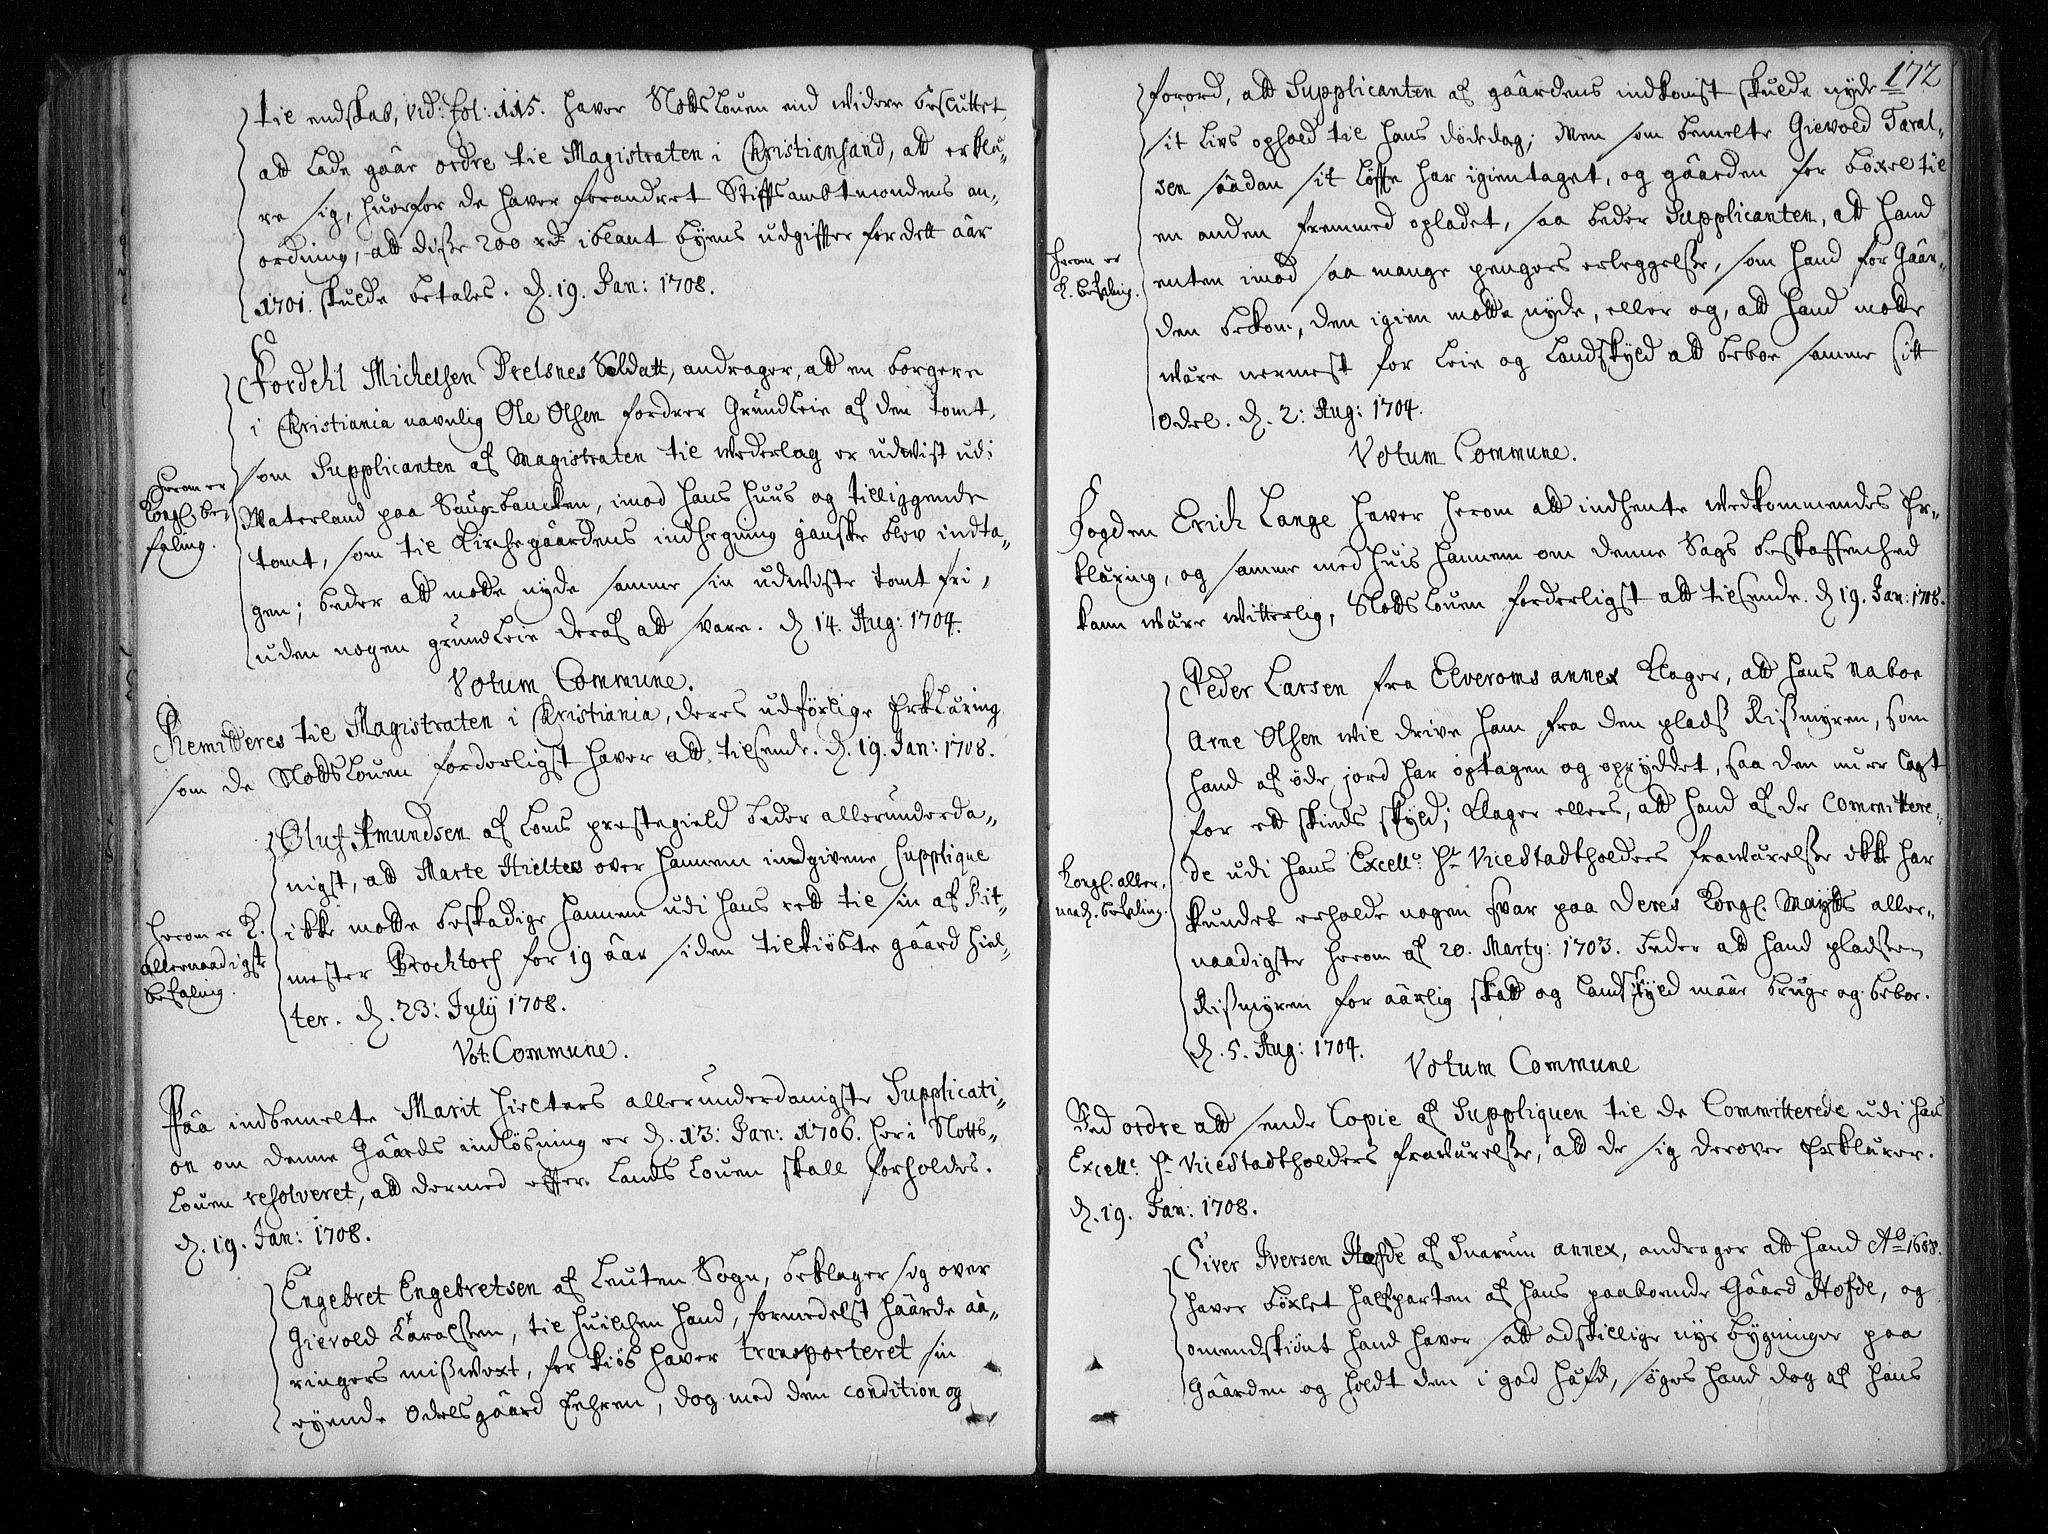 til endskab, vid: fol: 115. hafver Slotts Louen end widere besluttet,
att lade gaar ordre til Magistraten i Christiansand, att erklæ-
re sig, huorfor de hafver forandret Stifftsambtmandens an-
ordning, att disse 200 rd. iblant byens udgiffter for dett aar
1701 skulde betales. d. 19. Jan: 1708.
Michelsen Soldatt, andrager, att en borgere
i Christiania navnlig Ole Olsen fordrer Grundleie af den tomt,
som Supplicanten af Magistraten til wederlag er udwist udi
Waterland paa Saugbancken, imod hans huus og tilliggende
tomt, som til Kirchegaardens indhegning ganske blev indta-
gen; beder att motte nyde samme sin udwiste tomt fri,
uden nogen grundleie deraf att svare. d. 14. Aug: 1704.
Herom er
Kongl. be-
faling.
Votum Commune.
Remitteres til Magistraten i Christiania, deres udførlige Erklæring
som de Slotts Louen forderligst hafver att tilsende. d. 19. Jan: 1708.
Oluf Amundsen af Loms præstegield beder allerunderda-
nigst, att Marte Hieltes over hannem indgivene Supplique
ikke motte beskadige hannem udi hans rett til sin af Rit-
mester Brochtorf for 19 aar siden tilkiøbte gaard Hiel-
ter. d. 23: July 1708.
Herom er K.
allernaadigste
befaling.
Vot: Commune.
Paa indbemelte Marit Hielters allerunderdanigste Supplicati-
on om denne Gaards indløsning er d. 13: Jan: 1706. her i Slotts-
Louen resolveret, att dermed efter Lands Louen skall forholdes.
d. 19. Jan: 1708.
Engebret Engebretsen af Leuten Sogn, beklager sig over
Gievold Taralssen, til huilchen hand, formedelst haarde aa-
ringers misswext, for kiøb hafver transporteret sin
eyende Odelsgaard, dog med den condition og
172
forord, att Supplicanten af gaardens indkomst skulde nyde
sit livs ophold til hans dødedag; Men som bemelte Gievold Taral-
sen saadan sit løffte har igientaget, og gaarden for bøxel til
en anden fremmed opladet, saa beder Supplicanten, att hand
enten imod saa mange pengers erleggelse, som hand for Gaar-
den bekom, den igien motte nyde, eller og, att hand motte
være nermest for leie og Landskyld att beboe samme sitt
Odel. d. 2: Aug: 1704.
Herom er
K. befaling.
Votum Commune.
Fogden Erich Lange hafver herom att indhente wedkommendes Er-
klæring, og samme med huis hannem om denne Sags beskaffenhed
kann være witterlig, Slotts Louen forderligst att tilsende. d. 19. Jan: 1708.
Peder Larsen fra Elveroms annex klager, att hans naboe
Arne Olsen wil drive ham fra den plads Rissmyren, som
hand af øde jord har optagen og opryddet, saa den nu er lagt
for ett skinds skyld; klager ellers, att hand af de Committere-
de udi hans Excell: Hr Vicestadtholders frawærelse ikke har
kundet erholde nogen svar paa Deres Kongl. Mayts aller-
naadigste herom af 20. Marty: 1703. beder att hand pladsen
Rissmyren for aarlig skatt og landskyld maae bruge og beboe.
d. 5. Aug: 1704.
Kongl. aller-
naad. befaling.
Votum Commune
Bed ordre att sende Copie af Suppliquen til de Committerede udi hans
Excell: Hr Vicestadtholders frawærelse, att de sig derover Erklærer.
d. 19. Jan: 1708.
Siver Iversen Hofde af Snarum annex, andrager att hand Ao 1688.
hafver bøxlet halfparten af hans paaboende Gaard Hofde, og
omendskiønt hand hafver satt adskillige nye bygninger paa
Gaarden og holdt den i god hæfd, søges hand dog af hans